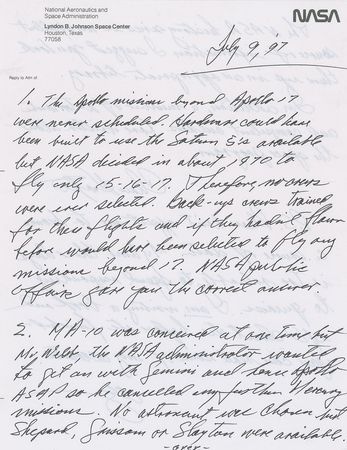 National Aeronautics and
Space Administration
Lyndon B. Johnson Space Center
Houston, Texas
77058
NASA
July 9, '97
Reply to Attn of
1. The Apollo missions beyond Apollo 17
were never scheduled. Hardware could have
been built to use the Saturn 5's available
but NASA decided in about 1970 to
fly only 15-16-17. Therefore, no crews
were ever selected. Back-up crews trained
for these flights and if they hadn't flown
before would have been selected to fly any
missions beyond 17. NASA public
affairs gave you the correct answer.
2. MA-10 was conceived at one time but
Mr. Webb, the NASA administrator wanted
to get on with Gemini and hence Apollo
ASAP so he cancelled any further Mercury
missions. No astronaut was chosen but
Shepard, Grissom or Slayton were available.
-over-